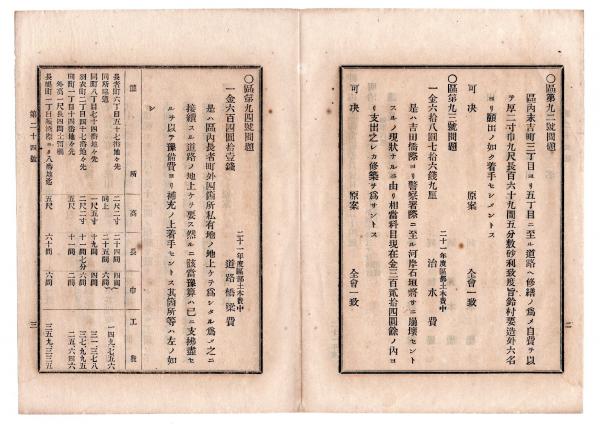 〇區第九二號問題
區內永吉町三丁目ヨリ五丁目ニ至ル道路ヘ修繕ノ爲メ自費ヲ以
テ厚二寸巾九尺長百六十九間五分敷砂利致度旨鈴村要造外六名
ヨリ願出ノ如ク着手セシメントス
可决 原案 全會一致
〇區第九三號問題
二十一年度區部土木費中
一金六拾八圓七拾六錢九厘 治水費
是ハ吉田橋際ヨリ警察署際ニ至ル河岸石垣將サニ崩壞セント
スルノ現狀ナルニ由リ相當科目現在金三百貳拾四圓餘ノ內ヨ
リ支出之レカ修築ヲ爲サントス
可决 原案 全會一致
二
〇區第九四號問題
二十一年度區部土木費中
一金六百四圓拾壹錢 道路橋梁費
是ハ區內長者町外四箇所私有地ノ地上ケヲ爲シタル爲メ之ニ
接續スル道路ノ地上ケヲ要ス然ルニ該當豫算ハ已ニ支拂盡セ
ルヲ以テ豫備費ヨリ補充ノ上着手セントス其箇所等ハ左ノ如
シ
箇所 高 長 巾 工費
長者町六丁目五十七番地々先 二尺二寸 二十四間 四間
同所地道 同上 二十五間 六間 一四九、七五六
同町八丁目七十四番地々先 一尺五寸 十九間 四間 三一、三七八
羽衣町二丁目三十七番地々先 二尺二寸 十一間七分 六間 三七、九九五
同町一丁目十四番地々先 五尺 十一間 二間 二五、六四六
外高一尺長四間土留橋
五尺 六十間 六間 三五九、三三五
第二十四號
三